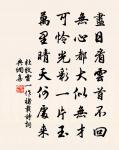 盡日看雲首不回
無心都大似無才
可憐光彩一片玉
萬里晴天何處來
杜牧雲一作褚載詩詞